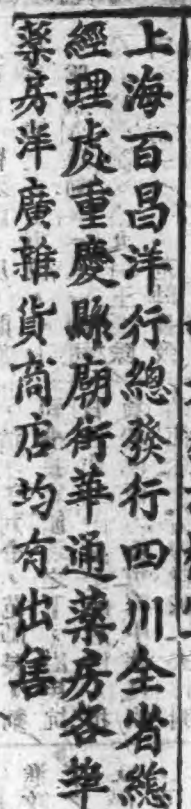 上海百昌洋行總發行四川全省總
經理處重慶縣廟街華通葯房各華
葯房洋廣雜貨商店均有出售